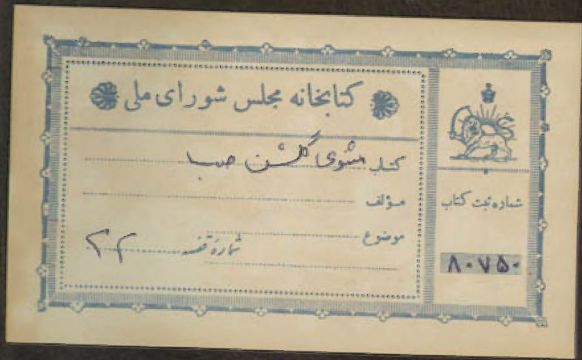 کتابخانه مجلس شورای ملی
کتاب مثنوی گلشن صبا
مؤلف
موضوع
شمارهٔ قفسه ۳۲
شماره ثبت کتاب
۸۰۷۵۰